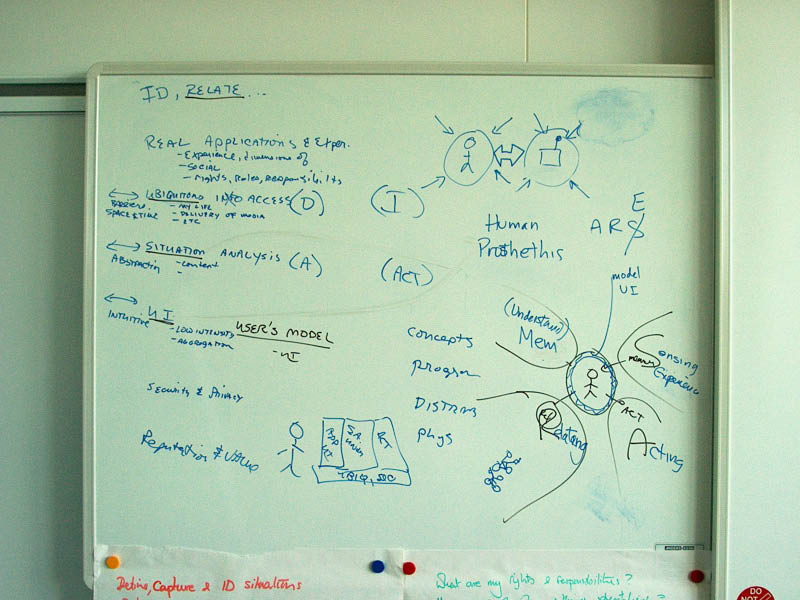 ID, RELATE...
REAL APPLICATIONS & Exper.
- Experience, dimensions of
- SOCIAL
- Rights, Roles, Responsibilts
UBIQUITOUS INFO ACCESS (D)
- MY LIFE
- DELIVERY OF MEDIA
- ETC
SPACE & TIME
(I)
SITUATION ANALYSIS (A)
- Content
-
ABSTRACTION
(ACT)
UI
- LOW INTENSITY
- AGGREGATION
INTUITIVE
USER'S MODEL
- UI
Security & Privacy
Reputation & Value
Rx
Human
Prosthethis
E
ARS
model
UI
(Understand)
Mem
Concepts
Program
DISTRIB
phys
Sensing
Experience
memory
ACT
Acting
Relating
Define, Capture & ID situations
What are my rights & responsibilities?
DO
NOT